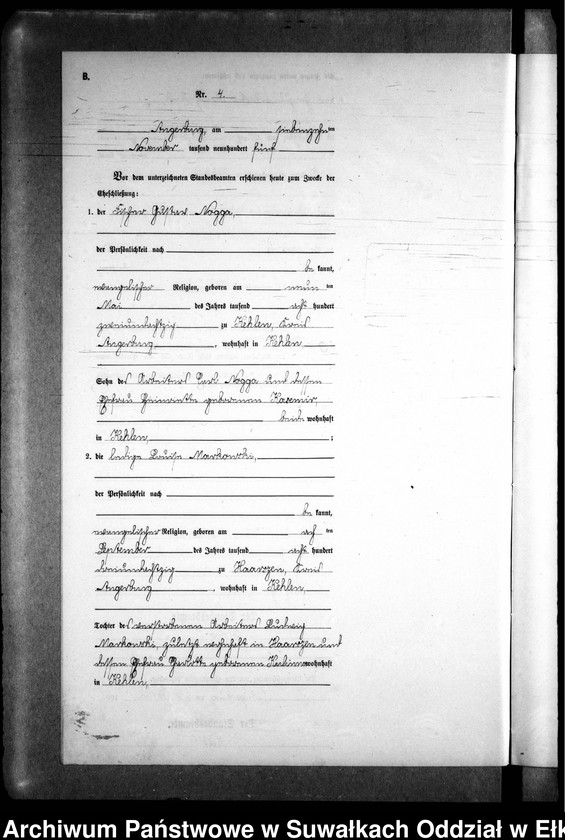 B.
Nr. 4.
Angerburg, am siebenzehn ten
November tausend neunhundert fünf
Vor dem unterzeichneten Standesbeamten erschienen heute zum Zwecke der
Eheschließung:
1. der Fischer Gustav Nogga,
der Persönlichkeit nach
be kannt,
evangelischer Religion, geboren am neun ten
Mai des Jahres tausend acht hundert
zweiundachtzig zu Kehlen, Kreis
Angerburg, wohnhaft in Kehlen
Sohn des Arbeiters Carl Nogga und dessen
Ehefrau Heinriette geborenen
beide wohnhaft
in Kehlen, ;
2. die ledige Louise Markowski,
der Persönlichkeit nach
be kannt,
evangelischer Religion, geboren am ach ten
September des Jahres tausend acht hundert
dreiundachtzig zu Haarszen, Kreis
Angerburg, wohnhaft in Kehlen,
Tochter des verstorbenen Arbeiters Ludwig
Markowski, zuletzt wohnhaft in Haarszen und
dessen Ehefrau geborenen wohnhaft
in Kehlen,
Archiwum Państwowe w Suwałkach Oddział w Ełk